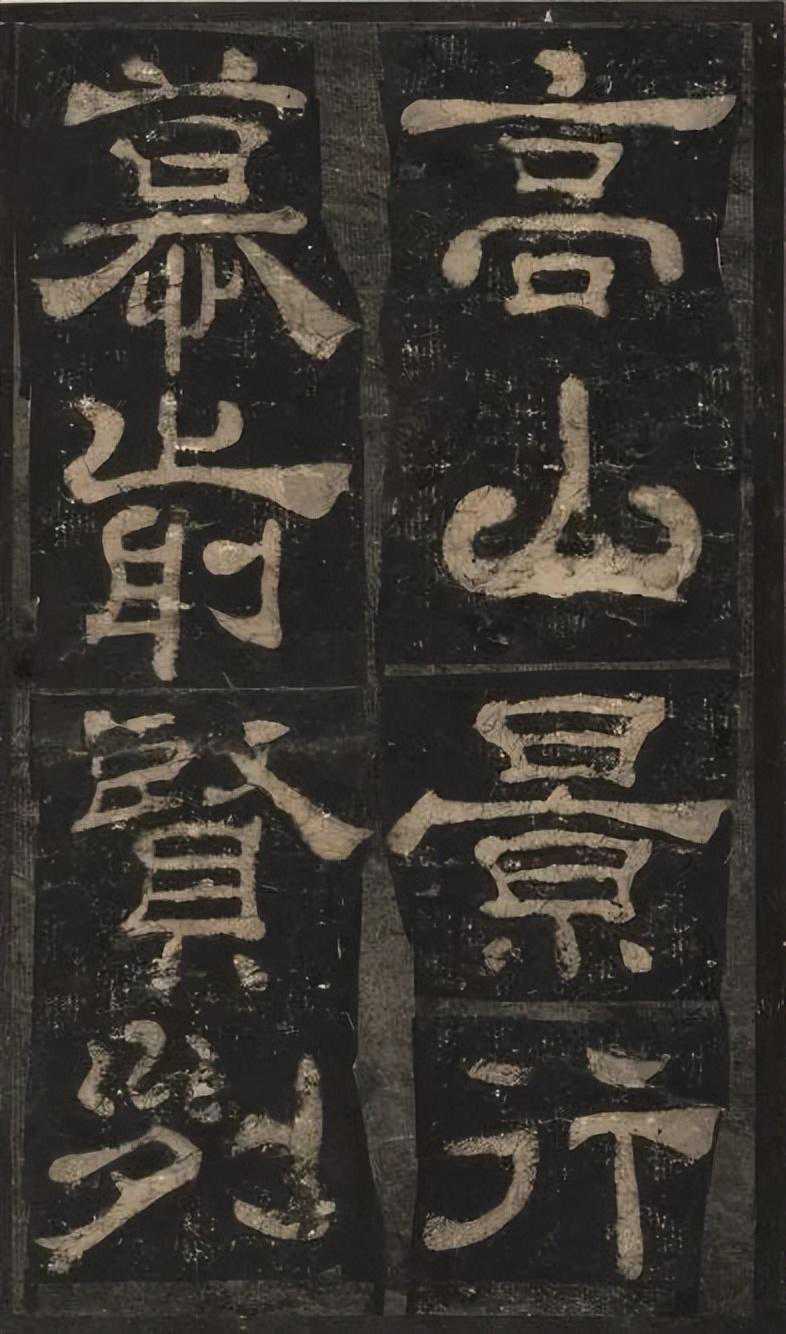 高山景行
慕前賢列